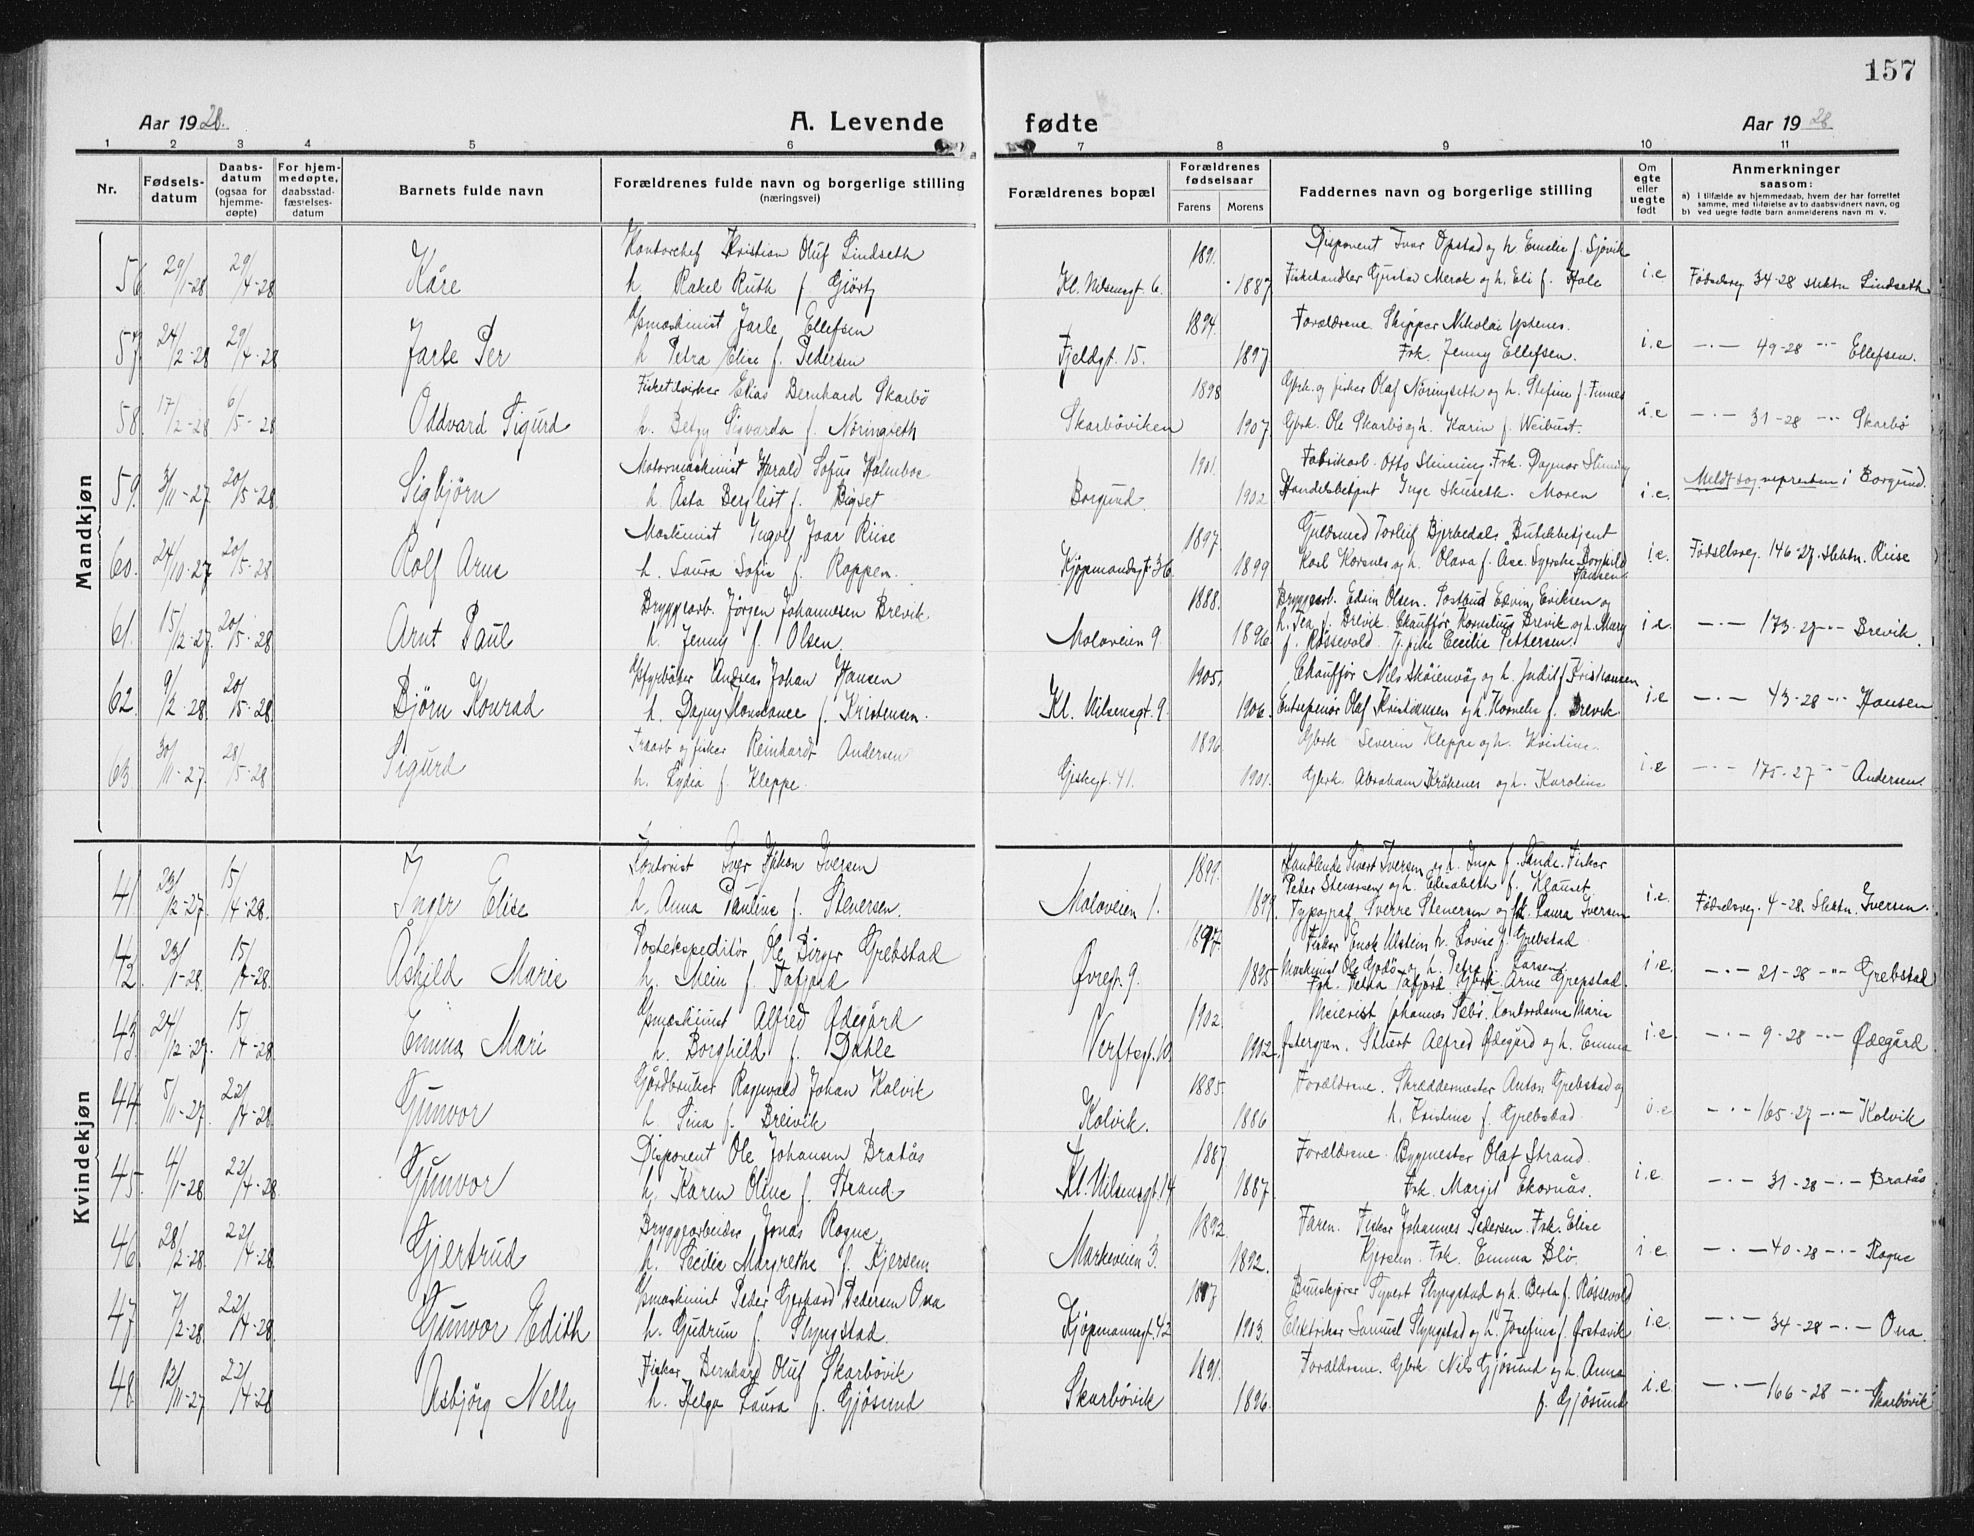 157
Aar 1928. A. Levende fødte Aar 1928
1 2 3 4 5 6 7 8 9 10 11
Nr. Fødselsdatum Daabsdatum (ogsaa for hjemmedøpte) For hjemmedøpte, daabsstadfæstelsesdatum Barnets fulde navn Forældrenes fulde navn og borgerlige stilling (næringsvei) Forældrenes bopæl Forældrenes fødselsaar Farens Morens Faddernes navn og borgerlige stilling Om egte eller uegte født Anmerkninger saasom:
a) i tilfælde av hjemmedaab, hvem der har forrettet samme, med tilføielse av to daabsvidners navn, og
b) ved uegte fødte barn anmelderens navn m. v.
Mandkjøn
Kontorchef Kristian Oluf Lindseth 1891. Disponent Ivar Opstad og h. Emelie f. Sjøvik
56 29/1-28 29/4-28 Kåre h. Rakel Ruth f. Gjørtz Kl. Nilsensgt. 6. 1887 Fiskehandler Gustav Merok og h. Eli f. Hole i.e Fødselsreg 34-28 slektn Lindseth
Maskinist Jarle Ellefsen 1894. Forældrene. Skipper Nikolai Ystenes.
57 24/2-28 29/4-28 Jarle Per h. Petra Elise f. Pedersen Fjeldgt. 15. 1897 Frk. Jenny Ellefsen. i.e -"- 49-28 -"- Ellefsen.
Fisketilvirker Elias Bernhard Skarbø 1898 Gbrk. og fisker Olaf Nøringseth og h. Stefine f. Finnes
58. 17/2-28 6/5-28 Oddvard Sigurd h. Betzy Sigvarda f. Nøringseth Skarbøviken 1907. Gbrk. Ole Skarbø og h. Karin f. Weibust. i.e -"- 31-28 -"- Skarbø
Motormaskinist Harald Sofus Holmboe 1901. Fabrikarb. Otto Slinning. Frk. Dagmar Slinning
59. 3/11-27 20/5-28 Sigbjørn h. Åsta Bergliot f. Bigset Borgund. 1902 Handelsbetjent Inge Skuseth. Moren i.e. Meldt sognepresten i Borgund.
Maskinist Ingolf Ivar Riise 1897. Guldsmed Torleif Bjerkedal. Butikbetjent
60. 24/10-27 20/5-28 Rolf Arne h. Laura Sofie f. Roppen. Kjøpmandsgt. 36 1899 Karl Korsnes og h. Olava f. Åse. Syerske Borghild Paulsen i.e. Fødselsreg. 146-27. slektn. Riise
Bryggearb. Jørgen Johannesen Brevik 1888. Bryggearb. Edvin Olsen. Postbud Edvin Eriksen og
61. 15/12-27. 20/5-28 Arnt Paul h. Jenny f. Olsen. Moloveien 9 1896 h. Tea f. Brevik. Chauffør Kornelius Brevik og h. Mary f. Røssevold. Tj.pike Cecilie Pettersen. i.e. -"- 173-27 -"- Brevik.
Fyrbøter Andreas Johan Hansen 1905. Chauffør Nils Skoienvåg og h. Judit f. Kristiansen
62. 9/2-28. 20/5-28. Bjørn Konrad h. Dagny Konstance f. Kristensen. Kl. Nilsensgt. 9. 1906. Entrepenør Olaf Kristiansen og h. Kornelia f. Brevik. i.e -"- 43-28 -"- Hansen
Traarb og fisker Reinhardt Andersen 1896 Gbrk Severin Kleppe og h. Kristine.
63 30/11-27. 28/5-28 Sigurd h. Lydia f. Kleppe. Giskegt. 41. 1901. Gbrk. Abraham Kråkenes og h. Karoline i.e -"- 175-27 -"- Andersen.
Kvindekjøn
Kontorist Iver Håkon Iversen 1899. Handlende Sivert Iversen og h. Inga f. Sande. Fisker
41. 23/12-27. 15/4-28. Inger Elise h. Anna Pauline f. Stenersen. Moloveien 1. 1899. Peder Stenersen og h. Elisabeth f. Klauset. Typograf Sverre Stenersen og frk. Laura Iversen i.e. Fødselsreg. 4-28. slektn. Iversen.
Postekspeditør Ole Birger Grebstad 1897 Fisker Enok Ulstein h. Lovise f. Grebstad
42. 23/1-28. 15/4-28. Åshild Marie h. Mein f. Tafjord Øvregt. 9. 1895 Maskinist Ole Godø og h. Petra f. Larsen. Frk. Petra Tafjord. Gbrk. Arne Grepstad. i.e. -"- 21-28 -"- Grebstad
Maskinist Alfred Ødegård 1902. Meierist Johannes Sebø. Kontordame Marie
43. 24/12-27. 15/4-28. Emma Mari h. Borghild f. Dahle Verftsgt. 10. 1902. Østergren. Stuert Alfred Ødegård og h. Emma i.e. -"- 9-28 -"- Ødegård.
Gårdbruker Ragnvald Johan Kolvik 1885. Forældrene. Skræddermester Anton Grebstad og
44. 5/11-27. 22/4-28. Gunvor h. Sina f. Breivik Kolvik. 1886 h. Kristine f. Grebstad. i.e -"- 165-27 -"- Kolvik
Disponent Ole Johansen Bratås 1887 Forældrene. Bygmester Olaf Strand.
45. 4/1-28 22/4-28. Gunvor h. Karen Oline f. Strand Kl. Nilsensgt. 14 1887. Frk. Margit Ekornås. i.e. -"- 31-28 -"- Bratås
Bryggearbeider Jonas Rogne 1892 Faren. Fisker Johannes Pedersen. Frk. Elise
46. 28/2-28. 22/4-28. Gjertrud h. Cecilie Margrethe f. Gjersem Markeveien 3. 1892. Gjersem. Frk. Emma Blø. i.e -"- 40-28 -"- Rogne
Maskinist Peder Gerhard Pedersen Ona Buntskjører Syvert Slyngstad og h. Berta f. Røssevold
47. 7/2-28. 22/4-28. Gunvor Edith h. Gudrun f. Slyngstad. Kjøpmannsgt. 42 1903. Elektriker Samuel Slyngstad og h. Josefine f. Ørstavik i.e. -"- 34-28 -"- Ona.
Fisker Bernhard Oluf Skarbøvik 1891. Forældrene. Gbrk Nils Gjøsund og h. Anna
48. 12/11-27 22/4-28 Asbjørg Nelly h. Helga Laura f. Gjøsund Skarbøvik 1896. f. Gjøsund i.e. -"- 166-28 -"- Skarbøvik